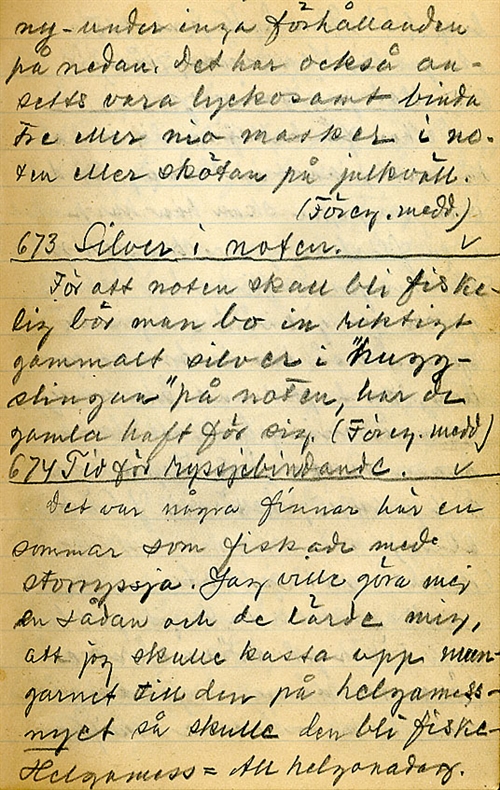 ny- under inga förhållanden
på nedan. Det har också an-
setts vara lyckosamt binda
Tre eller nio masker i no-
ten eller skötan på julkväll.
(Föreg. medd.)
673 Silver i noten. √
För att noten skall bli fiske-
lig bör man bo in riktigt
gammalt silver i "hugg-
slingan" på noten, har de
gamla haft för sig. (Föreg. medd)
674 Tid för ryssjebindande. √
Det var några finnar här en
sommar som fiskade med
storryssja. Jag ville göra mej
en sådan och de lärde mig,
att jag skulle kasta upp
garnet till den på helgamess-
nyet så skulle den bli fiske-
Helgamess = All helgonadag.